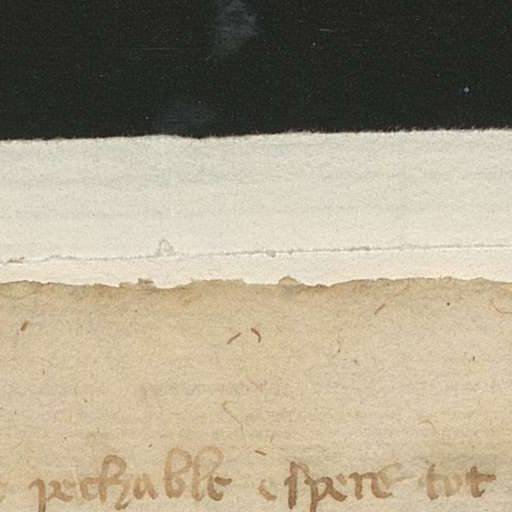 pechable espere tot